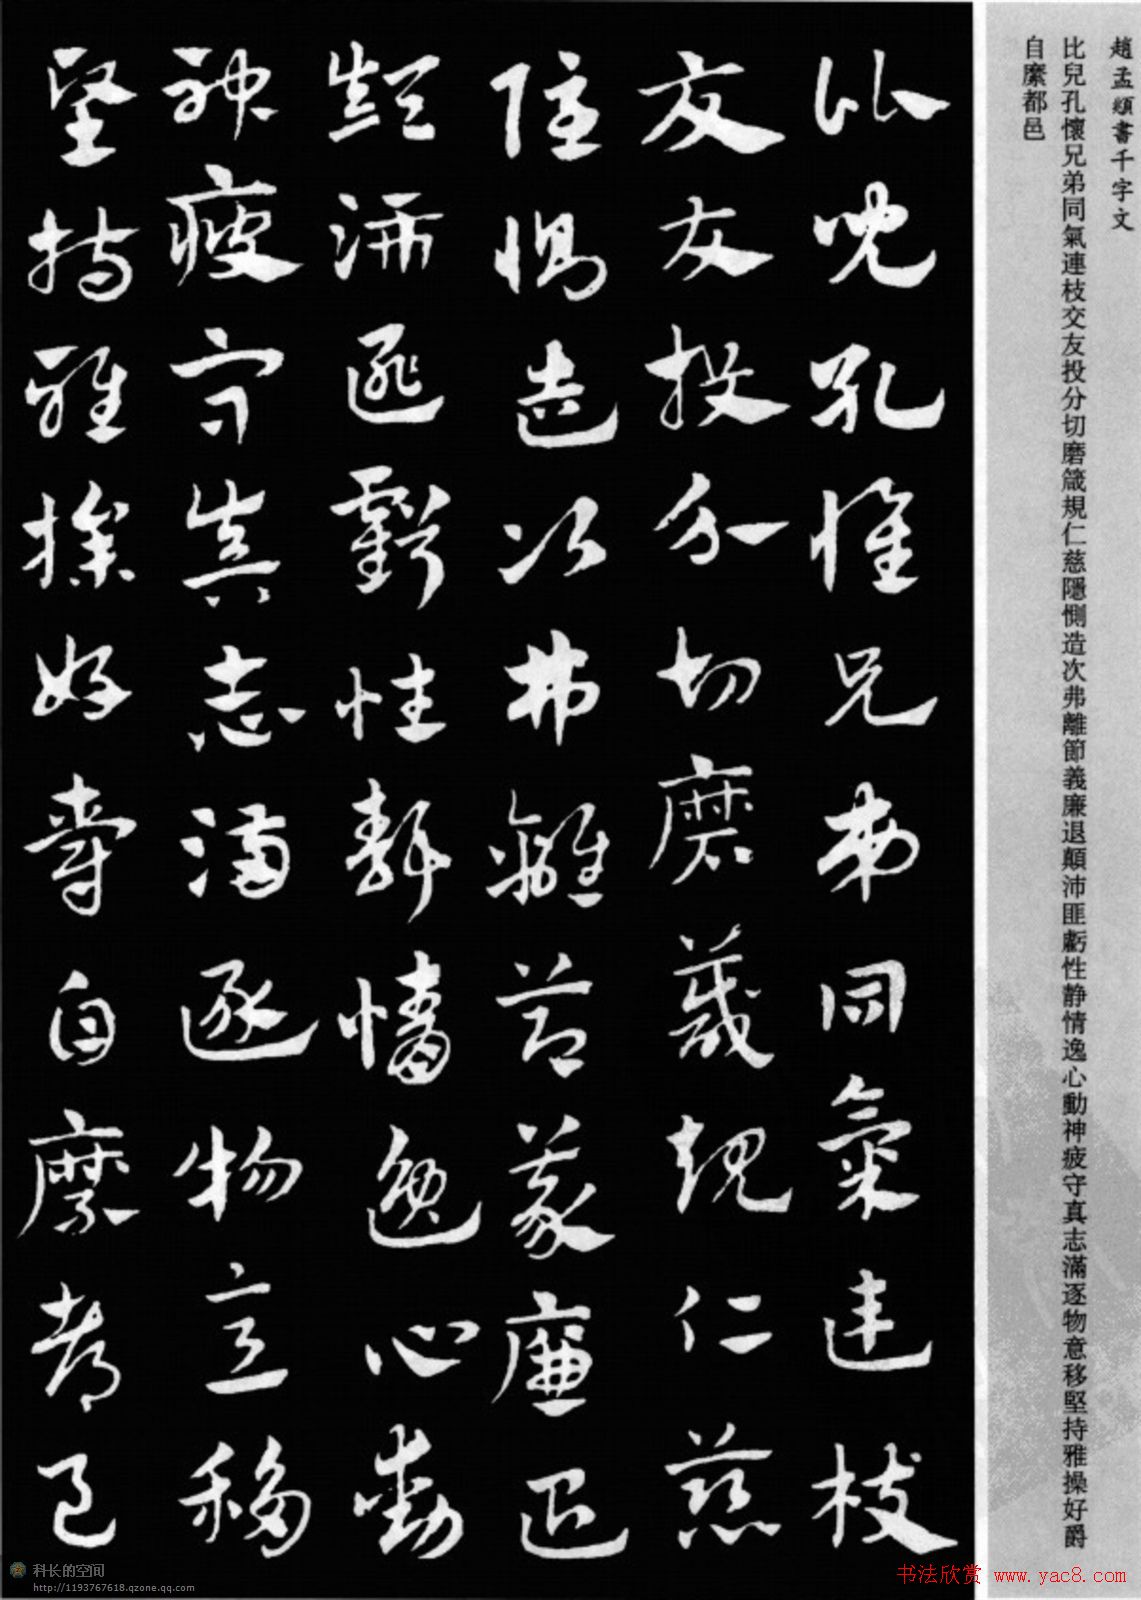 趙孟頫書千字文
比兒孔懷兄弟同氣連枝交友投分切磨箴規仁慈隱惻造次弗離節義廉退顛沛匪虧性静情逸心動神疲守真志滿逐物意移堅持雅操好爵
自縻都邑
比兒孔懷兄弟同氣連枝
交友投分切磨箴規仁慈
隱惻造次弗離節義廉退
顛沛匪虧性静情逸心動
神疲守真志滿逐物意移
堅持雅操好爵自縻都邑
科长的空间
http://1193767618.qzone.qq.com
书法欣赏 www.yac8.com